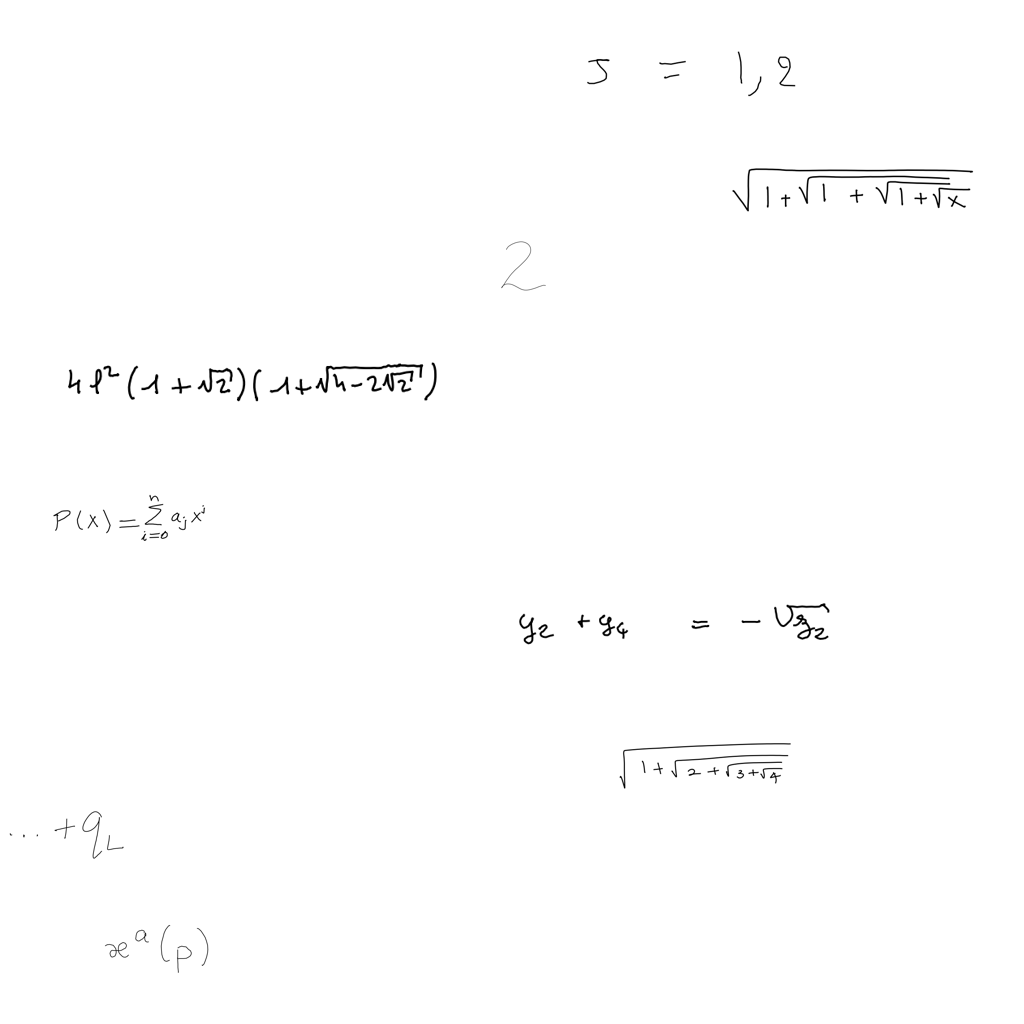 J = 1, 2
\sqrt{1+\sqrt{1+\sqrt{1+\sqrt{x}}}}
2
4l^2(1+\sqrt{2})(1+\sqrt{4-2\sqrt{2}})
P(x)=\sum_{i=0}^{n} a_j x^j
y_2 + y_4 = -\sqrt{z_2}
\sqrt{1+\sqrt{2+\sqrt{3+\sqrt{4}}}}
... + q_L
æ^a(p)